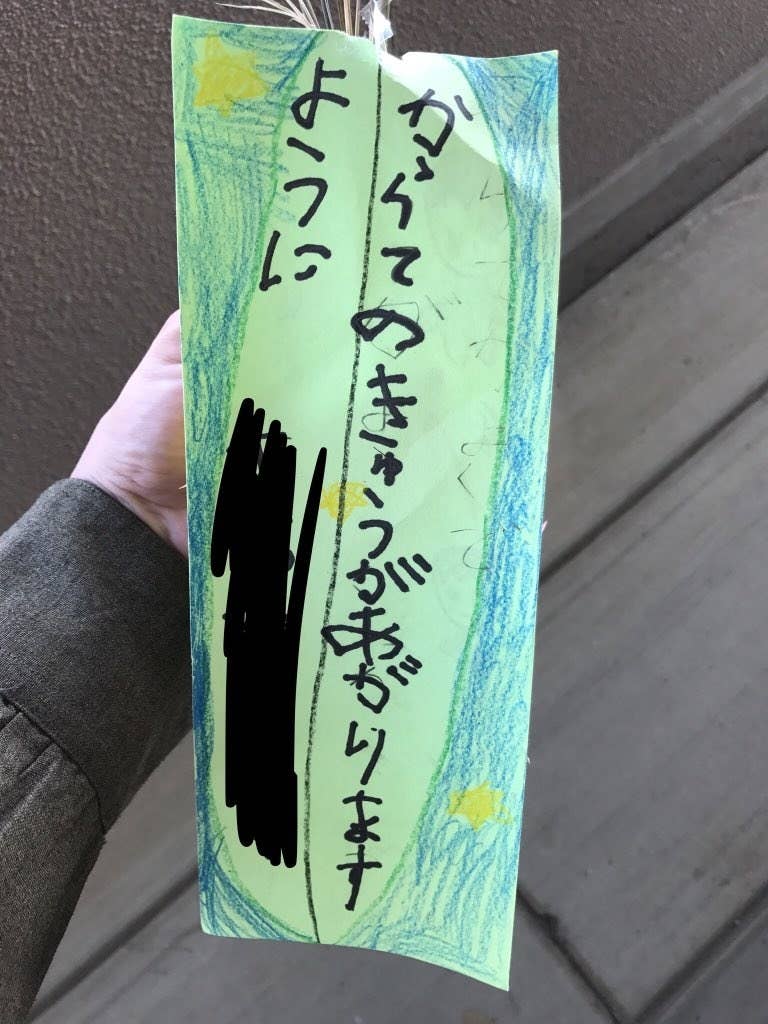 からてのきゅうがあがります
ように